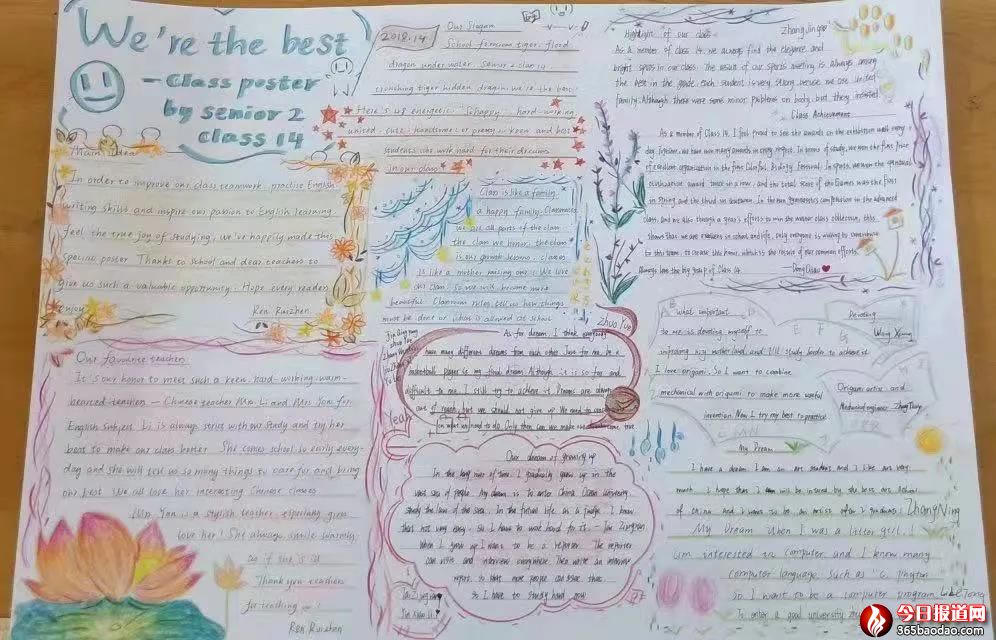 We're the best
— Class poster
by senior 2
class 14
Main idea
In order to improve our class teamwork, practise English
writing skills and inspire our passion to English learning
feel the true joy of studying, we've happily made this
special poster Thanks to school and dear teachers to
give us such a valuable opportunity. Hope every reader
enjoy
Ren Ruizhen
Our favourite teacher
It's our honor to meet such a keen, hard-working, warm-
hearted teachers — Chinese teacher Mrs. Li and Mrs Yan for
English subject. Li is always strict with our study and try her
best to make our class better. She comes school so early every-
day and she will tell us so many things to care for and bring
our best We all love her interesting Chinese classes
Mrs. Yan is a stylish teacher, especially
love her! She always smile warmly
as if she is
Thank you teachers
for teaching us!
Ren Ruizhen
2018.14
Our Slogan
School ferocious tiger, flood
dragon under water, senior 2 class 14
crouching tiger hidden dragon we're the best!
Here's us energetic, happy, hard-working
united, cute, handsome or pretty, keen and best
students who work hard for their dreams
in our class
Class is like a family
a happy family. Classmates
we are all parts of the class
the class we honor, the class
is our growth
is like a mother raising one. We love
our class. So we will become more
beautiful. Classroom rules tell us how things
must be done or what is allowed at school
Zhuo Yue
As for dream, I think everybody
have many different dreams from each other. Just for me, be a
basketball player is my final dream. Although it is so far and
difficult to me, I still try to achieve it. Dreams are always
out of reach, but we should not give up. We need to
on what we need to do. Only then can we make our come true
Yeah
Our dream of growing up
In the long river of time, I gradually grew up in the
vast sea of people. My dream is to enter China Ocean University
study the law of the sea. In the future life as a judge. I know
that not very easy, so I have to work hard for it.
When I grow up I want to be a reporter. The reporter
can visits and interview everywhere. Then write an interview
report, to let more people can
so I have to study hard now
Highlight of our class
Zhang Jingyi
As a member of class 14, we always find the elegance and
bright spots in our class. The result of our sports meeting is always among
the best in the grade. Each student is very strong because we are united
family. Although there were some minor problems on body, but they insisted.
Class Achievement
As a member of Class 14, I feel proud to see the awards in the exhibition wall every
day. Together, we have won many awards in every respect. In terms of study, we won the first prize
of excellent organization in the first Colorful Biology Festival. In sports, we won the
award twice in a row, and the total score of the Games was the first
in Spring and the third in Autumn. In the gymnastics competition in the advanced
class, and we also through a year's efforts to win the honor class collective, this
shows that we are excellent in school and life, only everyone is willing to contribute
to this team, to create the honor, which is the result of our common efforts.
Always love the big group of Class 14.
What important
to me is devoting myself to
improving my motherland, and I'll study harder to achieve it
I love origami. So I want to combine
mechanical with origami to make more useful
invention. Now I try my best to practice
Devoting
Wang
Origami artist and
Mechanical engineer
My Dream
I have a dream. I am an art student and I like art very
much. I hope that I can will be by the best art school
of china and I want to be an artist after I graduate
Zhang Ning
My Dream When I was a little girl, I
am interested in computer and I know many
computer language such as "C, phyton"
So I want to be a computer program
To enter a good university
今日报道网
365baodao.com